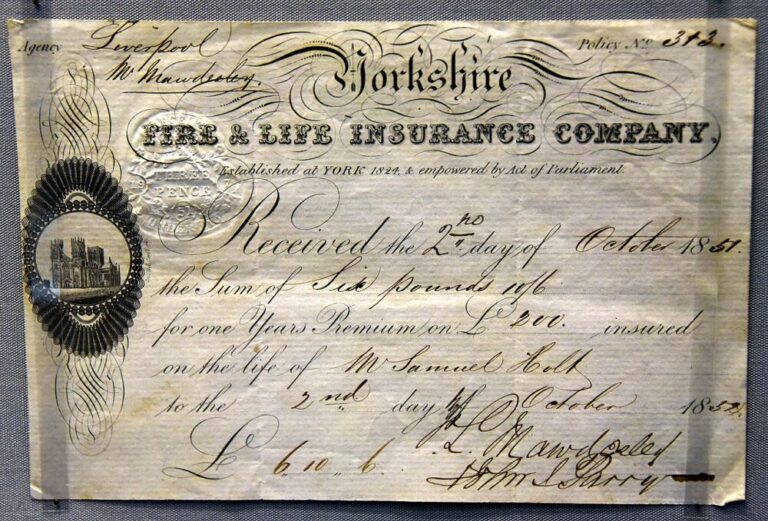 Agency Liverpool Policy No. 342.
Mr Mawdesley.
Yorkshire
FIRE & LIFE INSURANCE COMPANY,
THREE
PENCE
Established at YORK 1824, & empowered by Act of Parliament.
Received the 2nd day of October 1851.
the Sum of Six pounds 10/6
for one Years Premium on £ 200. insured
on the life of Mr Samuel Holt
to the 2nd day of October 1852.
£ 6 „ 10 „ 6.
Mawdesley